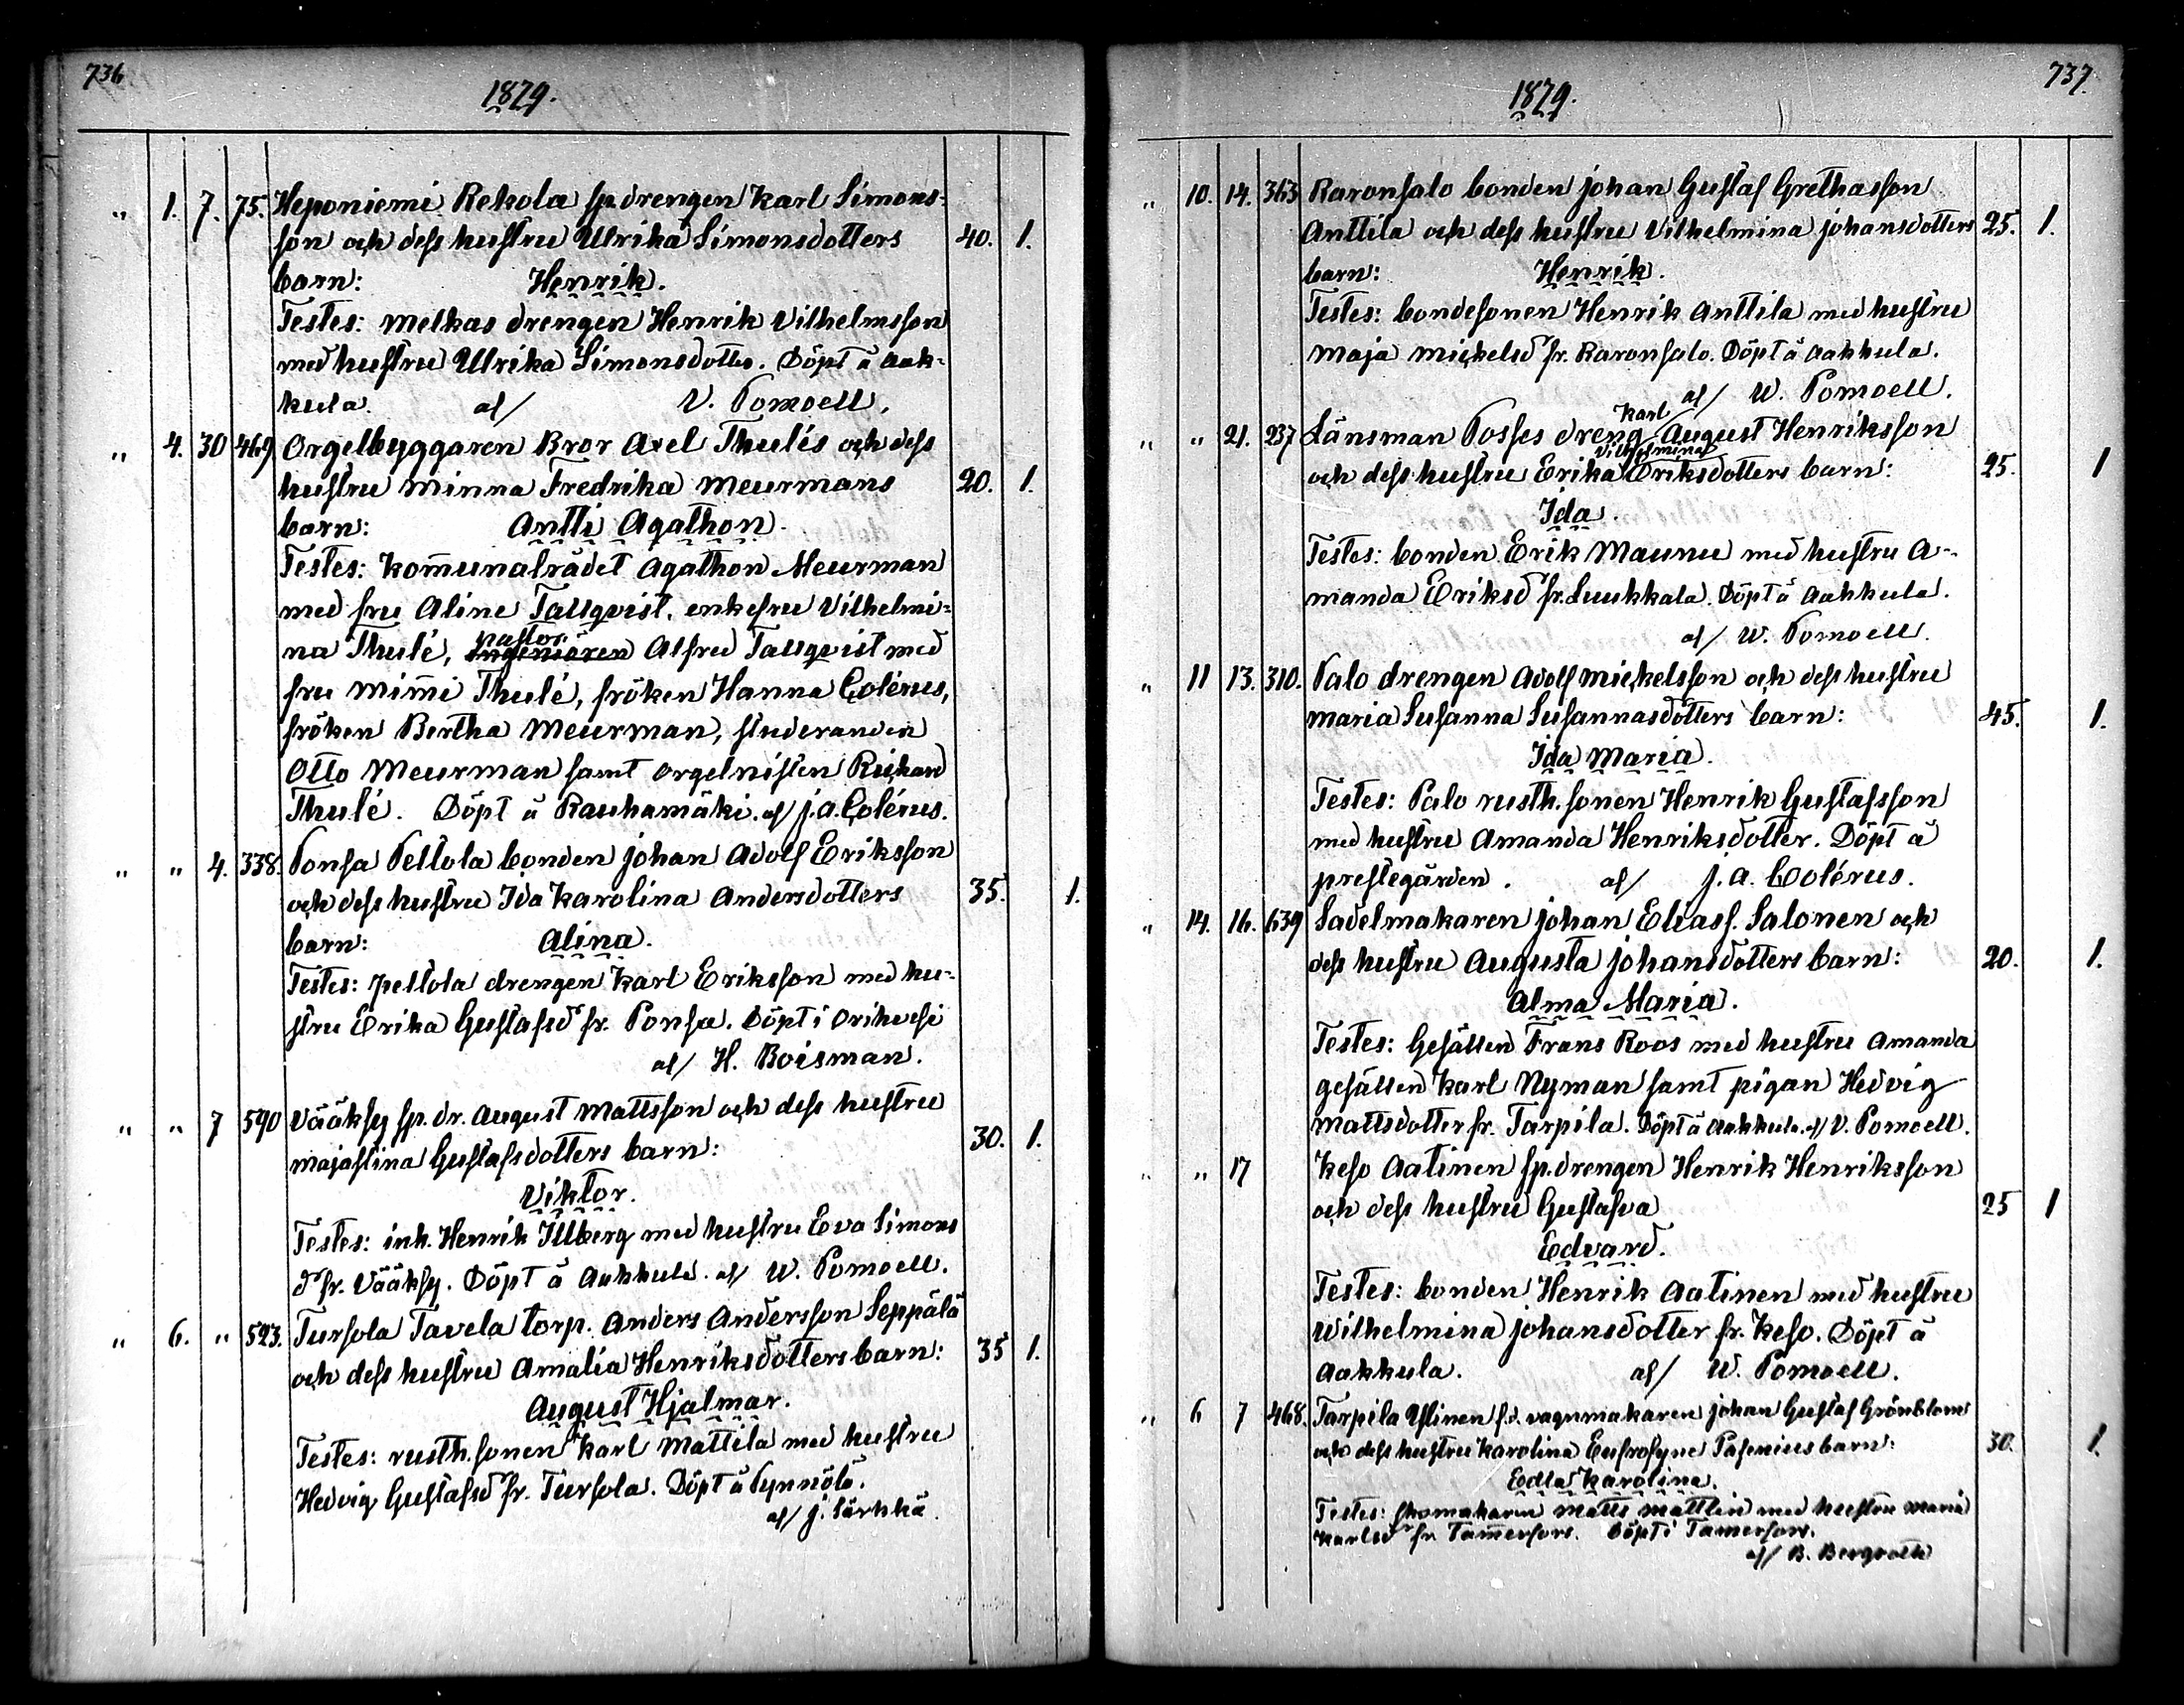 736
1879.
" 1. 7. 75. Heponiemi Rekola sp. drengen Karl Simons-
son och dess hustru Ulrika Simonsdotters 40. 1.
barn: Henrik.
Testes: Melkas drengen Henrik Vilhelmsson
med hustru Ulrika Simonsdotter. Döpt å Aak-
kula. af/ V. Pomoell.
" 4. 30 469 Orgelbyggaren Bror Axel Thulés och dess
hustru Minna Fredrika Meurmans 20. 1.
barn: Antti Agathon.
Testes: Kom̄unalrådet Agathon Meurman
med fru Aline Tallqvist, enkefru Vilhelmi-
pastor.
na Thulé, Ingeniören Alfred Tallqvist med
fru Mim̄i Thulé, fröken Hanna Colérus,
fröken Bertha Meurman, studeranden
Otto Meurman samt orgelnisten Richard
Thulé. Döpt å Rauhamäki. af/ J. A. Colérus.
" " 4. 338. Ponsa Peltola bonden Johan Adolf Eriksson
och dess hustru Ida Karolina Andersdotters 35. 1.
barn: Alina.
Testes: Peltola drengen Karl Eriksson med hu-
stru Erika Gustafsd fr. Ponsa. Döpt i Orihvesi
af/ H. Boisman.
" " 7 590 Vääksy sp. dr. August Mattsson och dess hustru
Majastina Gustafsdotters barn: 30. 1.
Viktor.
Testes: inh. Henrik Illberg med hustru Eva Simons
d fr. Vääksy. Döpt å Aakkula. af/ W. Pomoell.
" 6. " 523. Tursola Tavela torp. Anders Andersson Seppälä
och dess hustru Amalia Henriksdotters barn: 35 1.
August Hjalmar.
Testes: rusth. sonen Karl Mattila med hustru
Hedvig Gustafsd fr. Tursola. Döpt å Pynnölä.
af/ J. Särkkä.
737.
1879.
" 10. 14. 363 Raronsalo bonden Johan Gustaf Grethasson
Anttila och dess hustru Vilhelmina Johansdotters 25. 1.
barn: Henrik.
Testes: bondesonen Henrik Anttila med hustru
Maja Mickelsd fr. Raronsalo. Döpt å Aakkula.
af/ W. Pomoell.
Karl
" " 21. 237 Länsman Posses dreng August Henriksson
Vilhelmina
och dess hustru Erika Eriksdotters barn: 25. 1
Ida.
Testes: bonden Erik Maunu med hustru A-
manda Eriksd fr. Luukkala. Döpt å Aakkula.
af/ W. Pomoell.
" 11 13. 310. Palo drengen Adolf Mickelsson och dess hustru
Maria Susanna Susannasdotters barn: 45. 1.
Ida Maria.
Testes: Palo rusth. sonen Henrik Gustafsson
med hustru Amanda Henriksdotter. Döpt å
prestegården. af/ J. A. Colérus.
" 14. 16. 639 Sadelmakaren Johan Eliass. Salonen och
dess hustru Augusta Johansdotters barn: 20. 1.
Alma Maria.
Testes: Gesällen Frans Roos med hustru Amanda
gesällen Karl Nyman samt pigan Hedvig
Mattsdotter fr. Tarpila. Döpt å Aakkula. af/ V. Pomoell.
" " 17 Keso Aatinen sp. drengen Henrik Henriksson
och dess hustru Gustafva 25 1
Edvard.
Testes: bonden Henrik Aatinen med hustru
Wilhelmina Johansdotter fr. Keso. Döpt å
Aakkula. af/ W. Pomoell.
" 6 7 468. Tarpila Yllinen f.d. vagnmakaren Johan Gustaf Grönblom
och dess hustru Karolina Eufrosyne Pasenius barn: 30. 1.
Edla Karolina.
Testes: skomakaren Matts Mattlin med hustru Maria
Karlsd fr Tam̄erfors. Döpt i Tamerfors.
af/ B. Bergroth